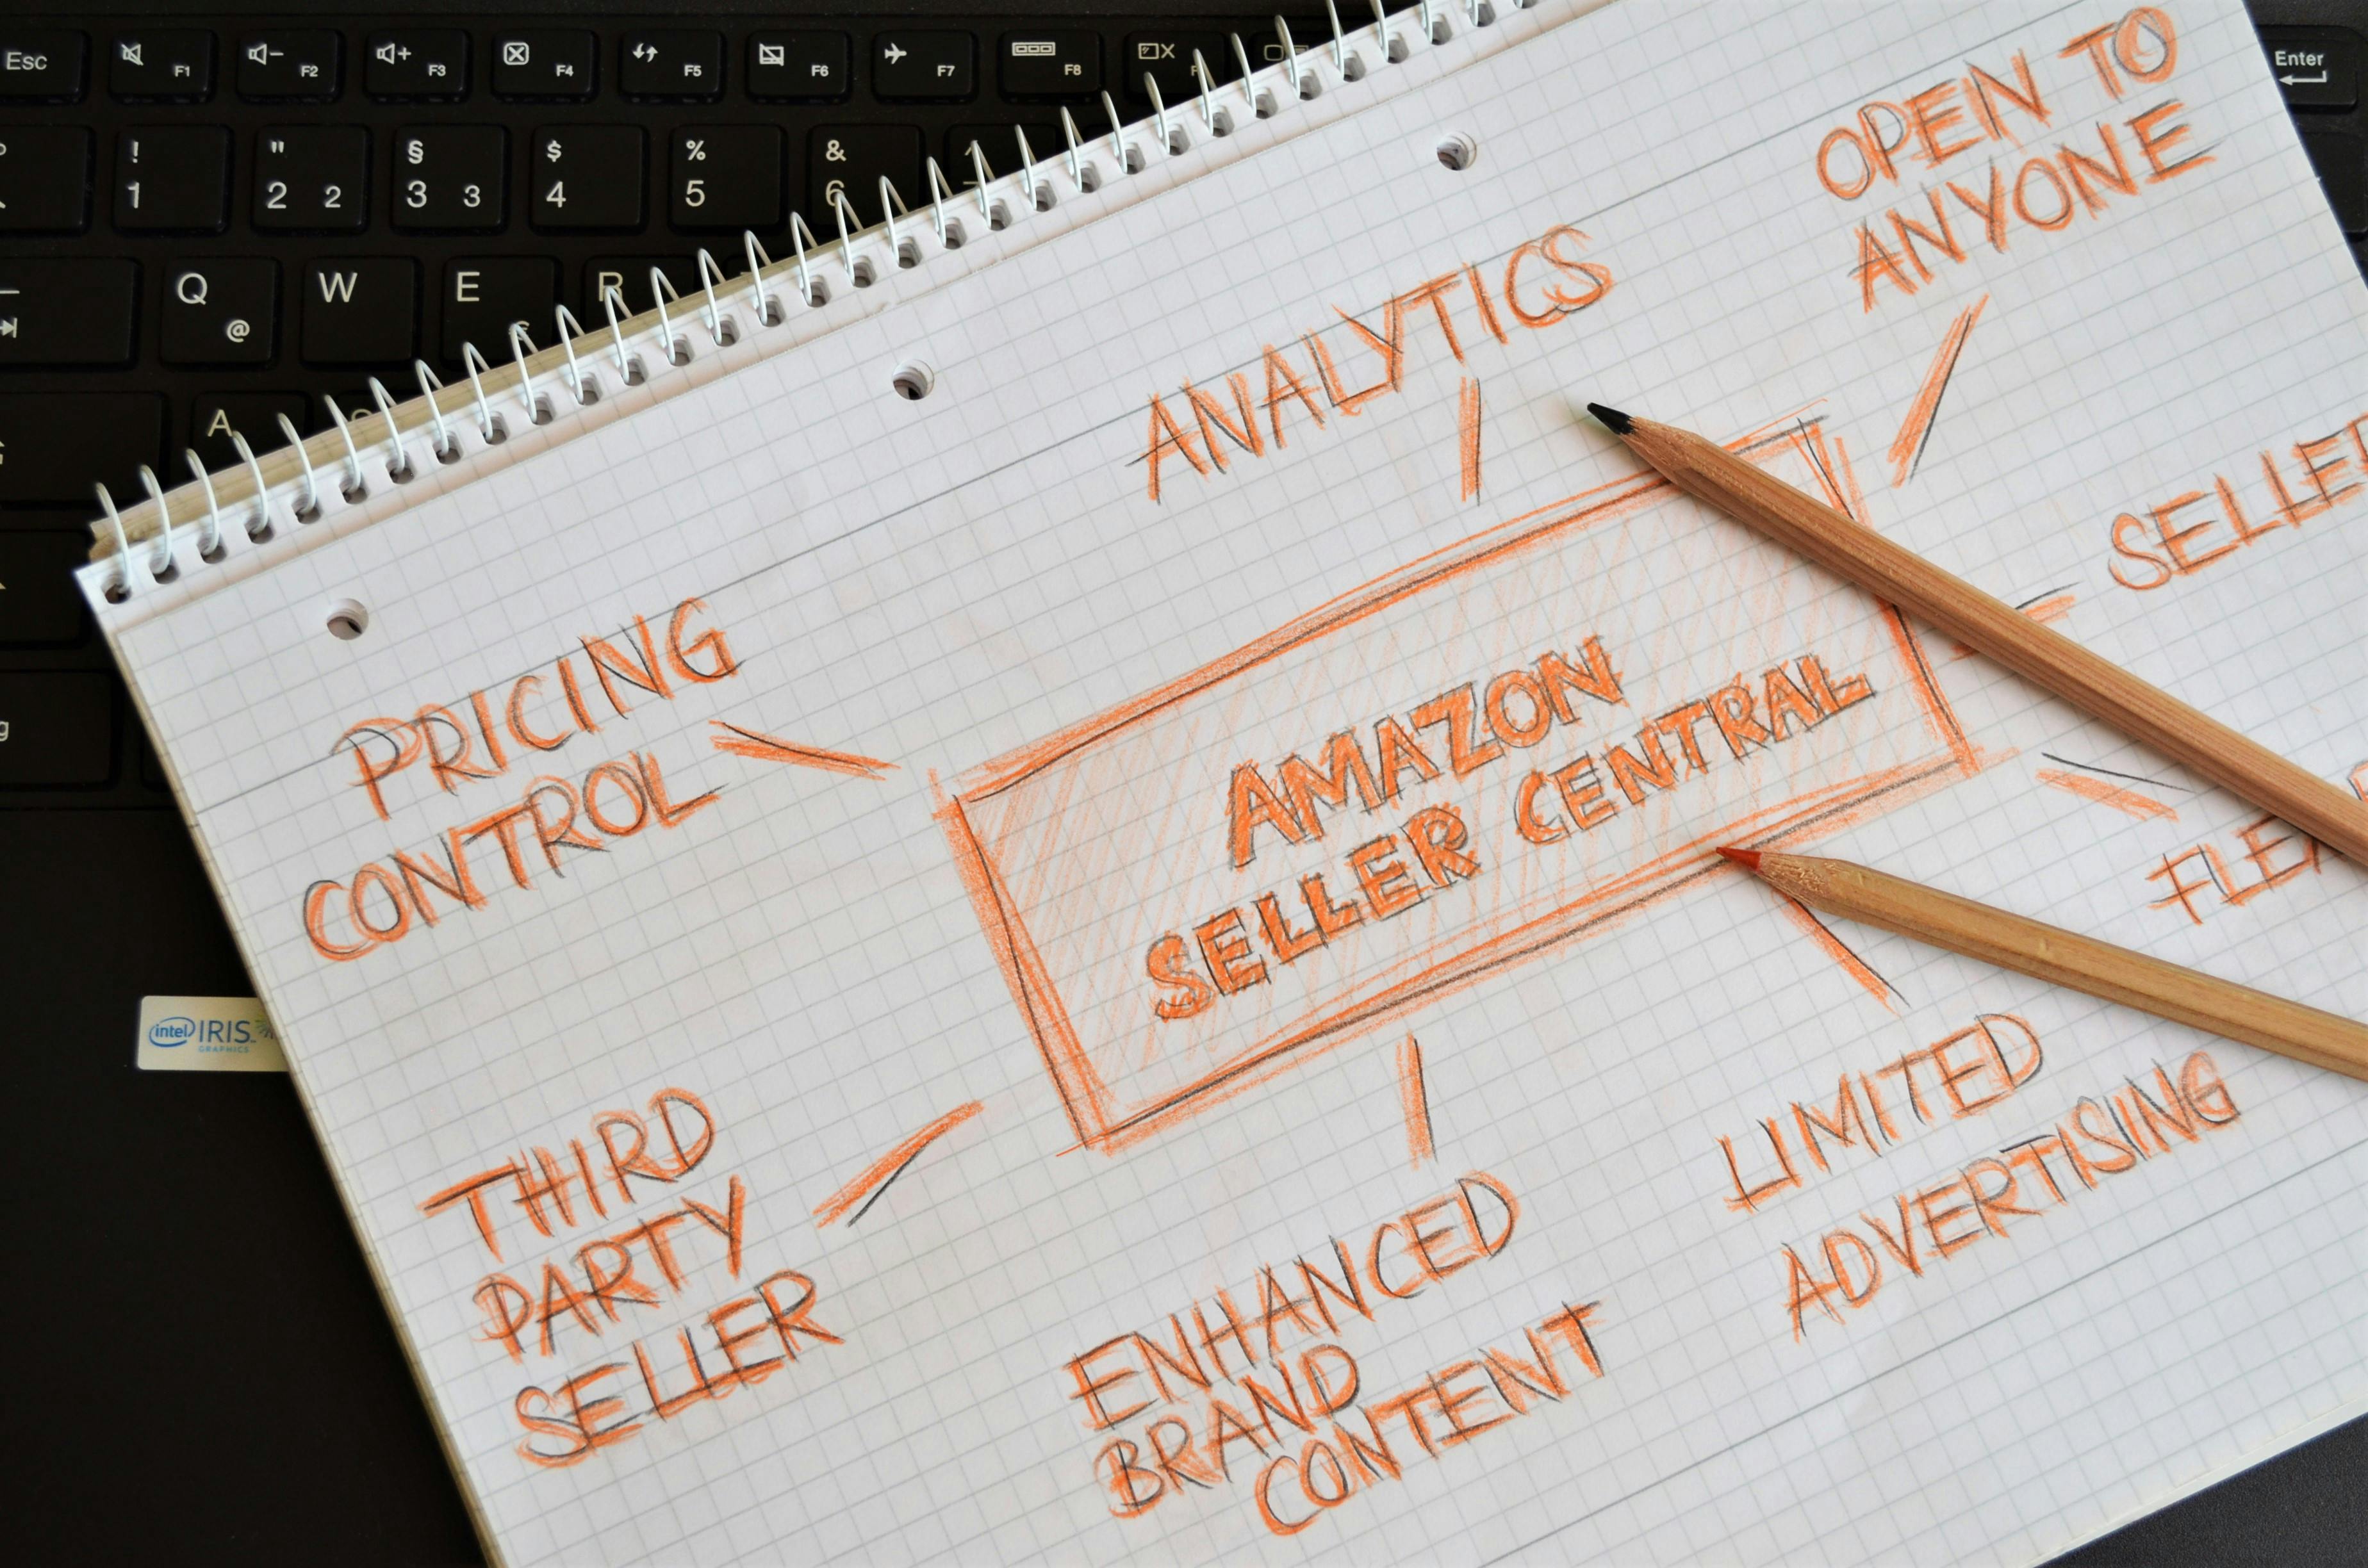 Esc
F1
F2
F3
F4
F5
F6
F7
F8
Enter
! 1
" 2 2
§ 3 3
$ 4
% 5
& 6
Q @
W
E
R
A
OPEN TO
ANYONE
ANALYTICS
PRICING
CONTROL
AMAZON
SELLER CENTRAL
THIRD
PARTY
SELLER
ENHANCED
BRAND
CONTENT
LIMITED
ADVERTISING
intel IRIS
GRAPHICS